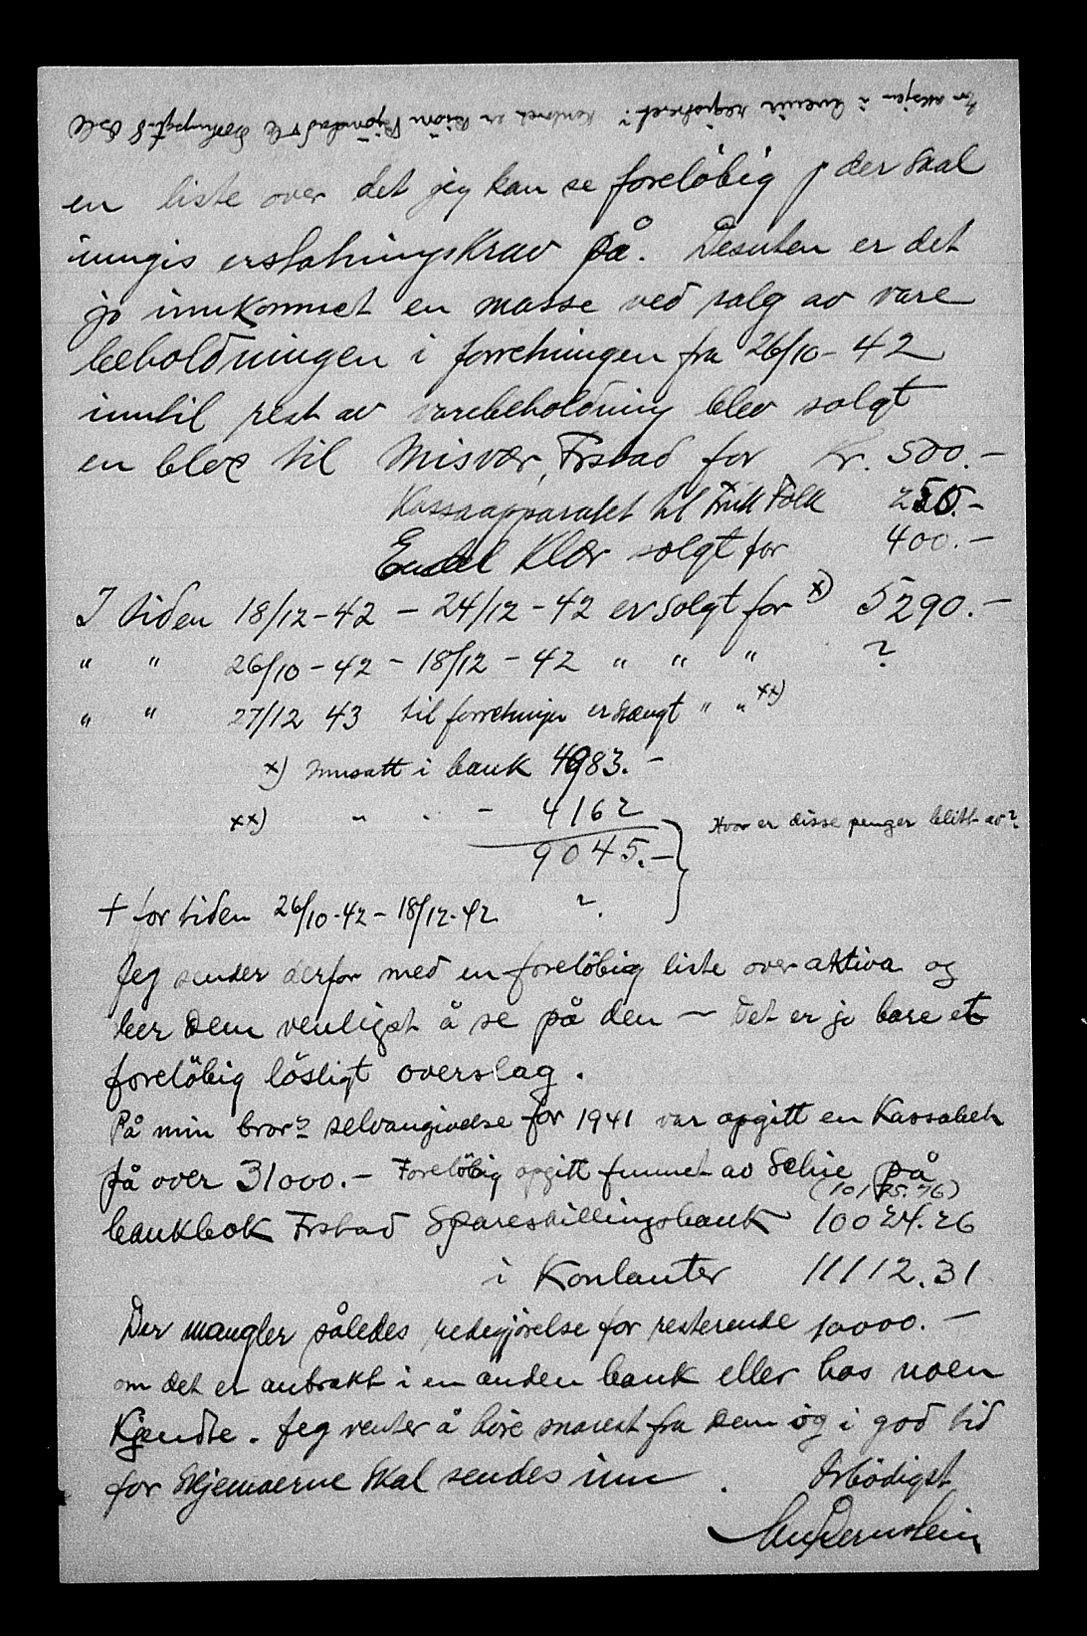 Er aksjen i Avenir registrert? Kontoret er
en liste over det jeg kan se foreløbig der skal
inngis erstatningskrav på. Desuten er det
jo innkommet en masse ved salg av vare
beholdningen i forretningen fra 26/10 - 42
inntil rest av varebeholdning blev solgt
en bloc til Misvær, Frstad for Kr. 500.-
Kassaapparatet til Erik Falk 250.-
Endel Klær solgt for 400.-
I tiden 18/12 - 42 - 24/12 - 42 er solgt for x) 5290.-
" " 26/10 - 42 - 18/12 - 42 " " " ?
" " 27/12 43 til forretningen er stengt " " xx)
x) innsatt i bank 4983.-
xx) " " - 4162
9045.- Hvor er disse penger blitt av?
+ for tiden 26/10-42 - 18/12-42 ?
Jeg sender derfor med en foreløbig liste over aktiva og
ber Dem venligst å se på den - Det er jo bare et
foreløbig løsligt overslag.
På min bror? selvangivelse for 1941 var opgitt en Kassabeh
på over 31000.- Foreløbig opgitt funnet av Schie på
(10125.76)
bankbok Frstad Spareskillingsbank 10024.26
i Konlanter 11112.31
Der mangler således redegjørelse for resterende 10000.-
om det er anbrakt i en anden bank eller hos noen
Kjendte. Jeg venter å høre snarest fra Dem og i god tid
for Skjemaerne skal sendes inn. Ærbødigst